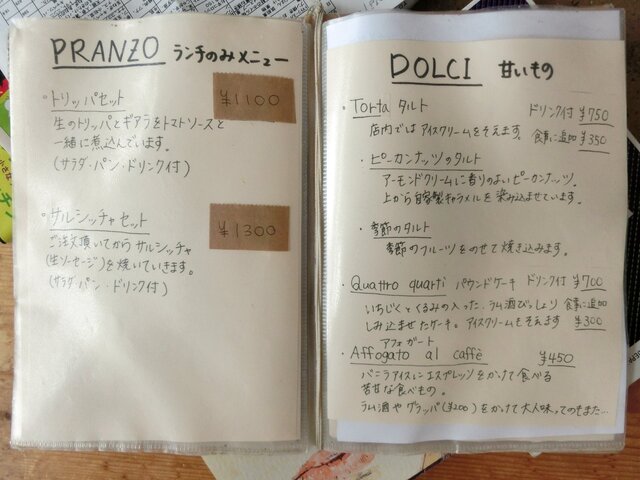 PRANZO ランチのみメニュー
・トリッパセット ¥1100
生のトリッパとギアラをトマトソースと
一緒に煮込んでいます。
(サラダ・パン・ドリンク付)
・サルシッチャセット ¥1300
ご注文頂いてからサルシッチャ
(生ソーセージ)を焼いていきます。
(サラダ・パン・ドリンク付)
DOLCI 甘いもの
・Torta タルト ドリンク付 ¥750
店内ではアイスクリームをそえます。 食事に追加 ¥350
・ピーカンナッツのタルト
アーモンドクリームに香りのよいピーカンナッツ。
上から自家製キャラメルを染み込ませています。
・季節のタルト
季節のフルーツをのせて焼き込みます。
・Quattro quarti パウンドケーキ ドリンク付 ¥700
いちじくとくるみの入った、ラム酒びっしょり 食事に追加
しみ込ませたケーキ。アイスクリームもそえます ¥300
アフォガート
・Affogato al caffè ¥450
バニラアイスにエスプレッソをかけて食べる
苦甘な食べもの。
ラム酒やグラッパ(¥200)をかけて大人味ってのもまた…